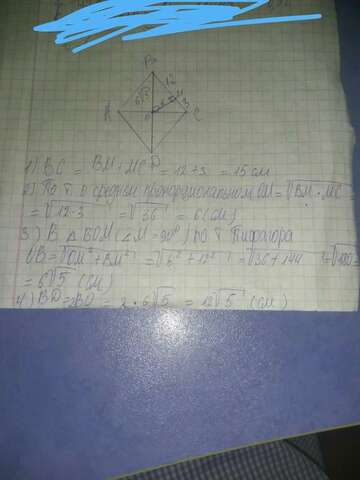 B
12
6√5
M
3
A
O
C
D
1) BC = BM + MC = 12 + 3 = 15 см
2) По т. о среднем пропорциональном OM = √BM · MC
= √12·3 = √36 = 6 (см)
3) В △ BOM (∠M = 90°) по т Пифагора
OB = √OM² + BM² = √6² + 12² = √36 + 144 = √180 =
= 6√5 (см)
4) BD = 2BO = 2 · 6√5 = 12√5 (см)